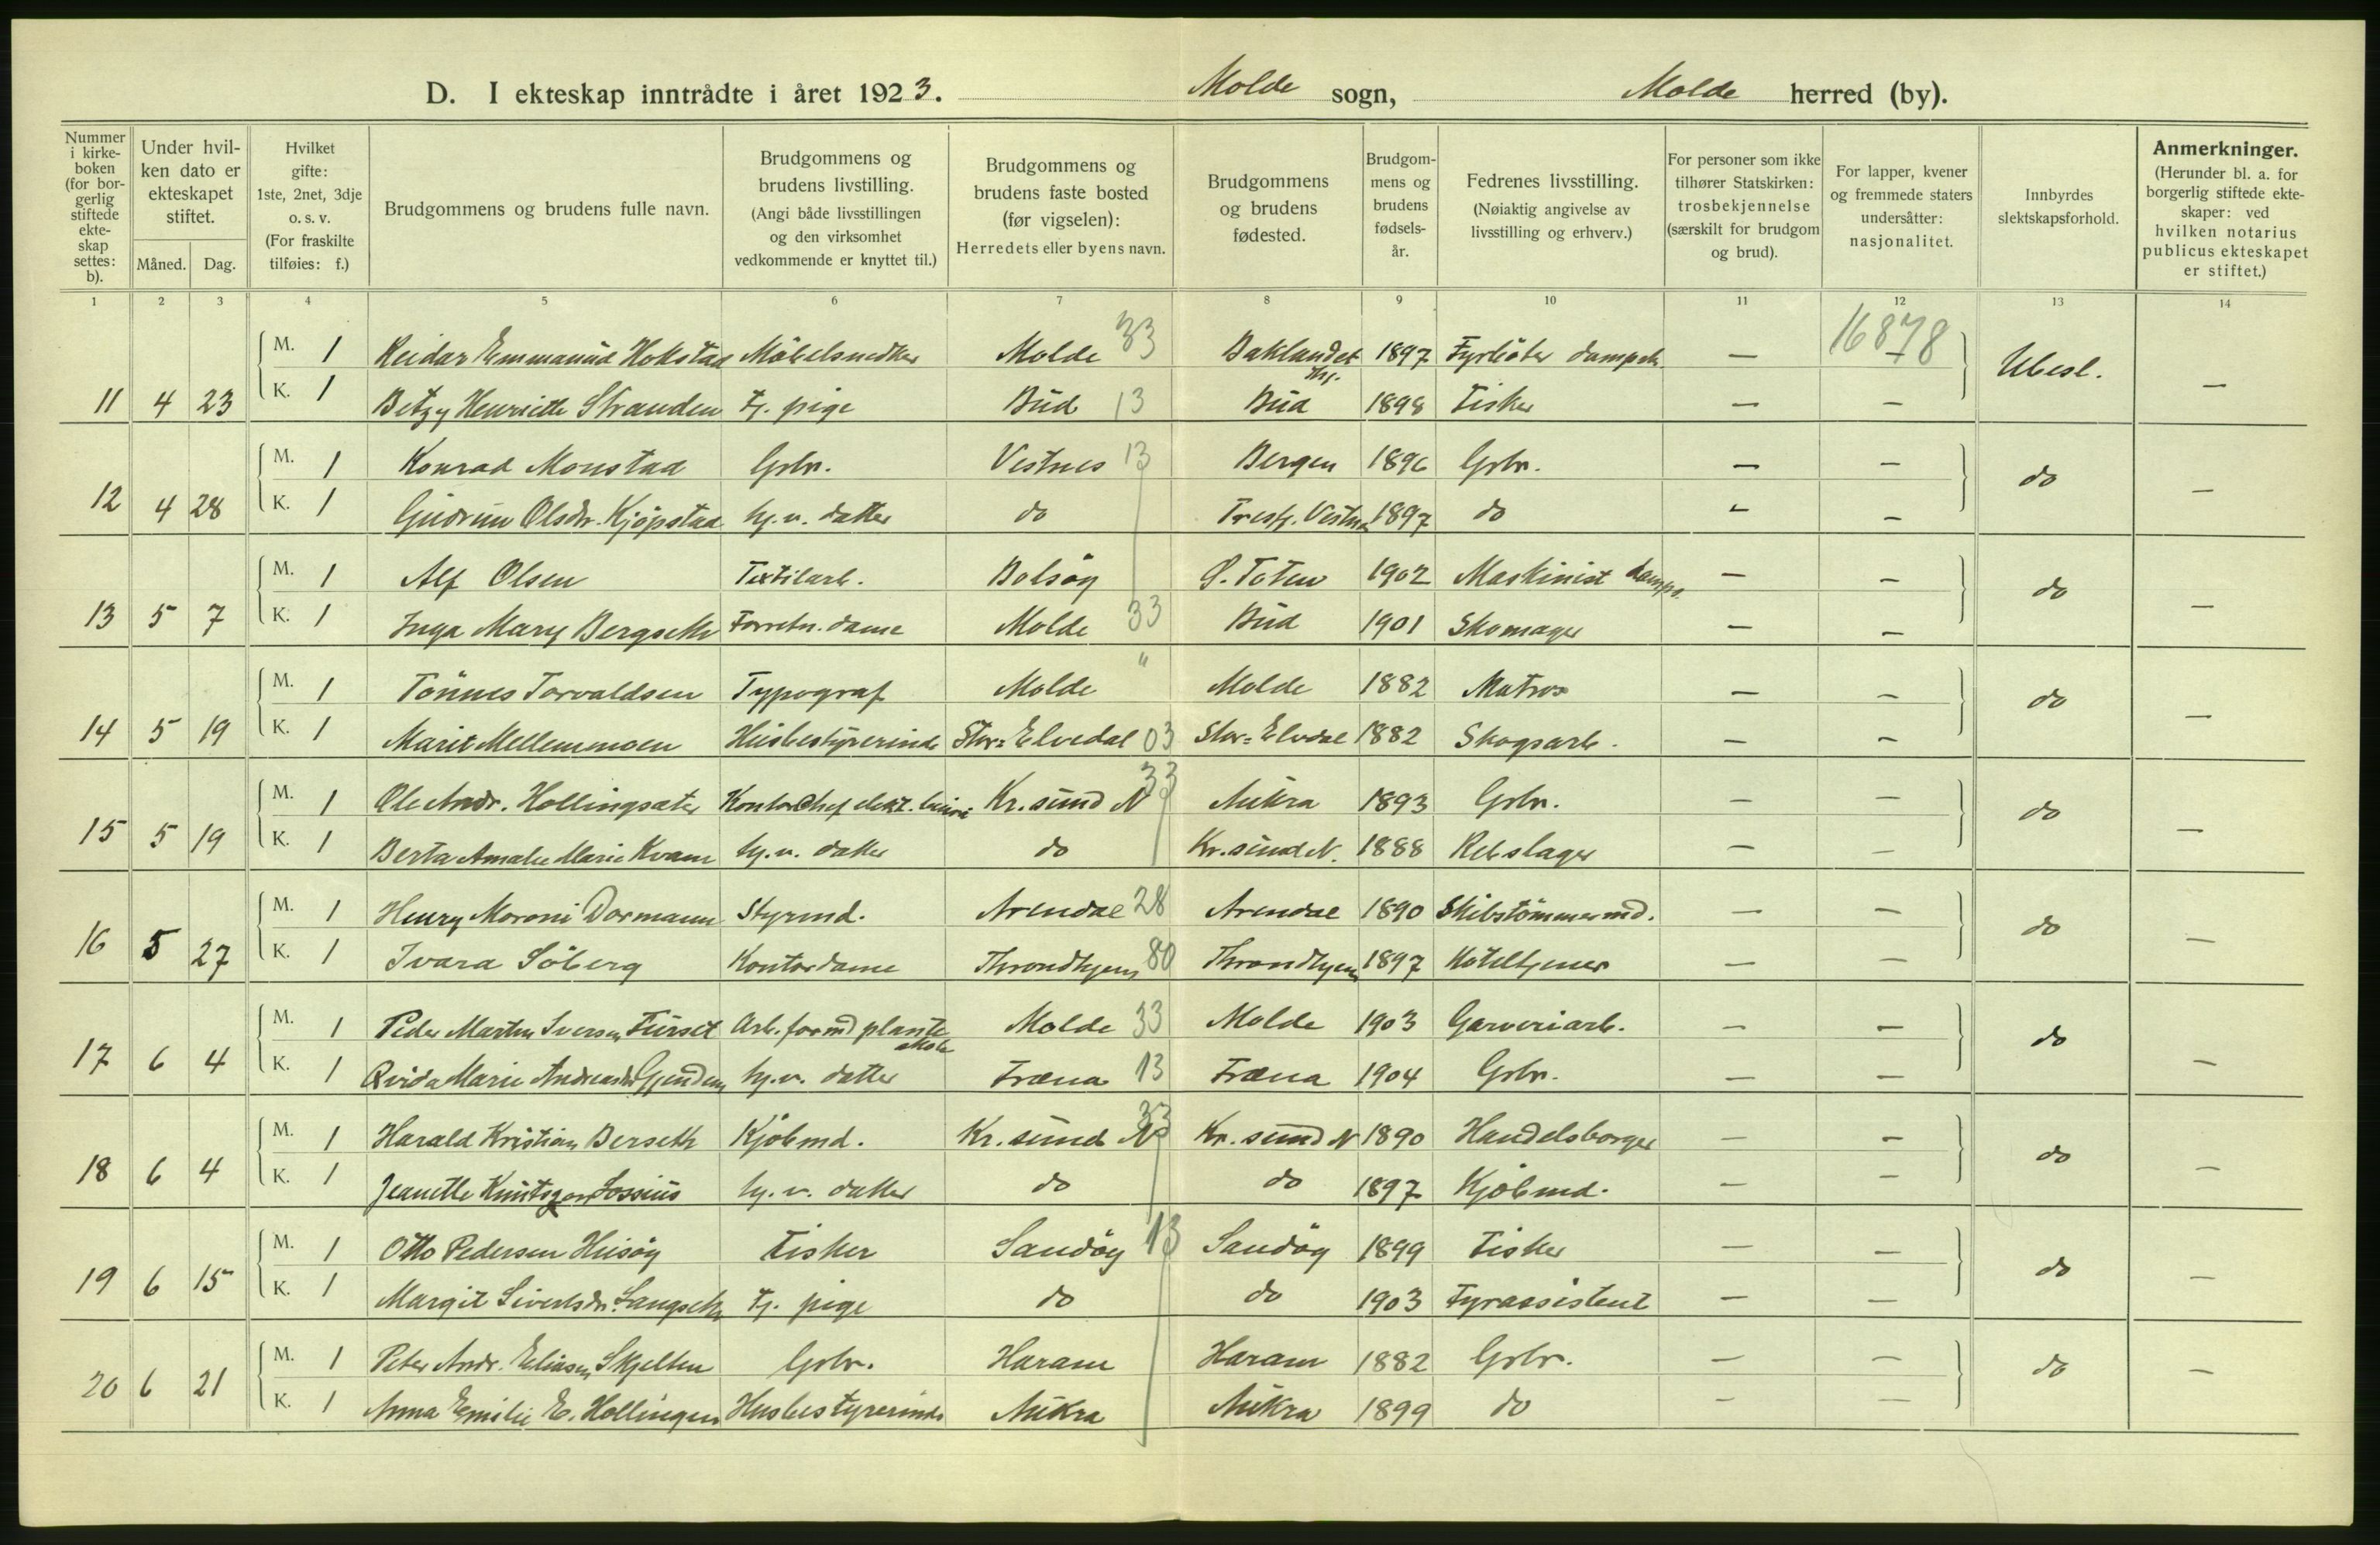 D. I ekteskap inntrådte i året 1923. Molde sogn, Molde herred (by).
Nummer i kirke- boken (for bor- gerlig stiftede ekte- skap settes: b).
Under hvil- ken dato er ekteskapet stiftet.
Måned. Dag.
Hvilket gifte: 1ste, 2net, 3dje o. s. v. (For fraskilte tilføies: f.)
Brudgommens og brudens fulle navn.
Brudgommens og brudens livstilling. (Angi både livsstillingen og den virksomhet vedkommende er knyttet til.)
Brudgommens og brudens faste bosted (før vigselen): Herredets eller byens navn.
Brudgommens og brudens fødested.
Brudgom- mens og brudens fødsels- år.
Fedrenes livsstilling. (Nøiaktig angivelse av livsstilling og erhverv.)
For personer som ikke tilhører Statskirken: trosbekjennelse (særskilt for brudgom og brud).
For lapper, kvener og fremmede staters undersåtter: nasjonalitet.
Innbyrdes slektskapsforhold.
Anmerkninger. (Herunder bl. a. for borgerlig stiftede ekte- skaper: ved hvilken notarius publicus ekteskapet er stiftet.)
1 2 3 4 5 6 7 8 9 10 11 12 13 14
M. 1 Reidar Emmanuel Hokstad Möbelsnedker Molde 33 Baklandet 1897 Fyrböter dampsk. — 16878 — Ubesl.
11 4 23 K. 1 Betzy Henriette Stranden Tj. pige Bud 13 Bud 1898 Fisker — — —
M. 1 Konrad Monstad Grbr. Vestnes 13 Bergen 1896 Grbr. — — do
12 4 28 K. 1 Gudrun Olsdr. Kjöpstad hj. v. datter do Trestf. Vestnes 1897 do — — —
M. 1 Alf Olsen Textilarb. Bolsöy Ø. Toten 1902 Maskinist damps. — — do
13 5 7 K. 1 Inga Mary Bergseth Forretn. dame Molde 33 Bud 1901 Skomager — — —
M. 1 Tönnes Torvaldsen Typograf Molde " Molde 1882 Matros — — do
14 5 19 K. 1 Marit Mellemmoen Husbestyrerinde Stor=Elvedal 03 Stor=Elvdal 1882 Skogsarb. — — —
M. 1 Ole Andr. Hollingsæter Kontorchef elekt. Kr. sund N 33 Aukra 1893 Grbr. — — do
15 5 19 K. 1 Berta Amalie Marie Kvam hj. v. datter do Kr. sund N. 1888 Rebslager — — —
M. 1 Henry Moroni Dormann Styrmd. Arendal 28 Arendal 1890 Skibstömmermd. — — do
16 5 27 K. 1 Ivara Söberg Kontordame Throndhjem 80 Throndhjem 1897 Hoteltjener — — —
M. 1 Peder Martin Iversen Furset Arb. formd planteskole Molde 33 Molde 1903 Garveriarb. — — do
17 6 4 K. 1 Qvida Marie Andreasdr. Gjendem hj. v. datter Fræna 13 Fræna 1904 Grbr. — — —
M. 1 Harald Kristian Berseth Kjöbmd. Kr. sund N 33 Kr. sund N 1890 Handelsborger — — do
18 6 4 K. 1 Jeanette Knutszon Lossius hj. v. datter do do 1897 Kjöbmd. — — —
M. 1 Otto Pedersen Husöy Fisker Sandöy 13 Sandöy 1899 Fisker — — do
19 6 15 K. 1 Margit Sivertsdr. Langseth Tj. pige do do 1903 Fyrassistent — — —
M. 1 Peter Andr. Eliasen Skjelten Grbr. Haram Haram 1882 Grbr. — — do
20 6 21 K. 1 Anna Emilie E. Hollingen Husbestyrerinde Aukra Aukra 1899 do — — —